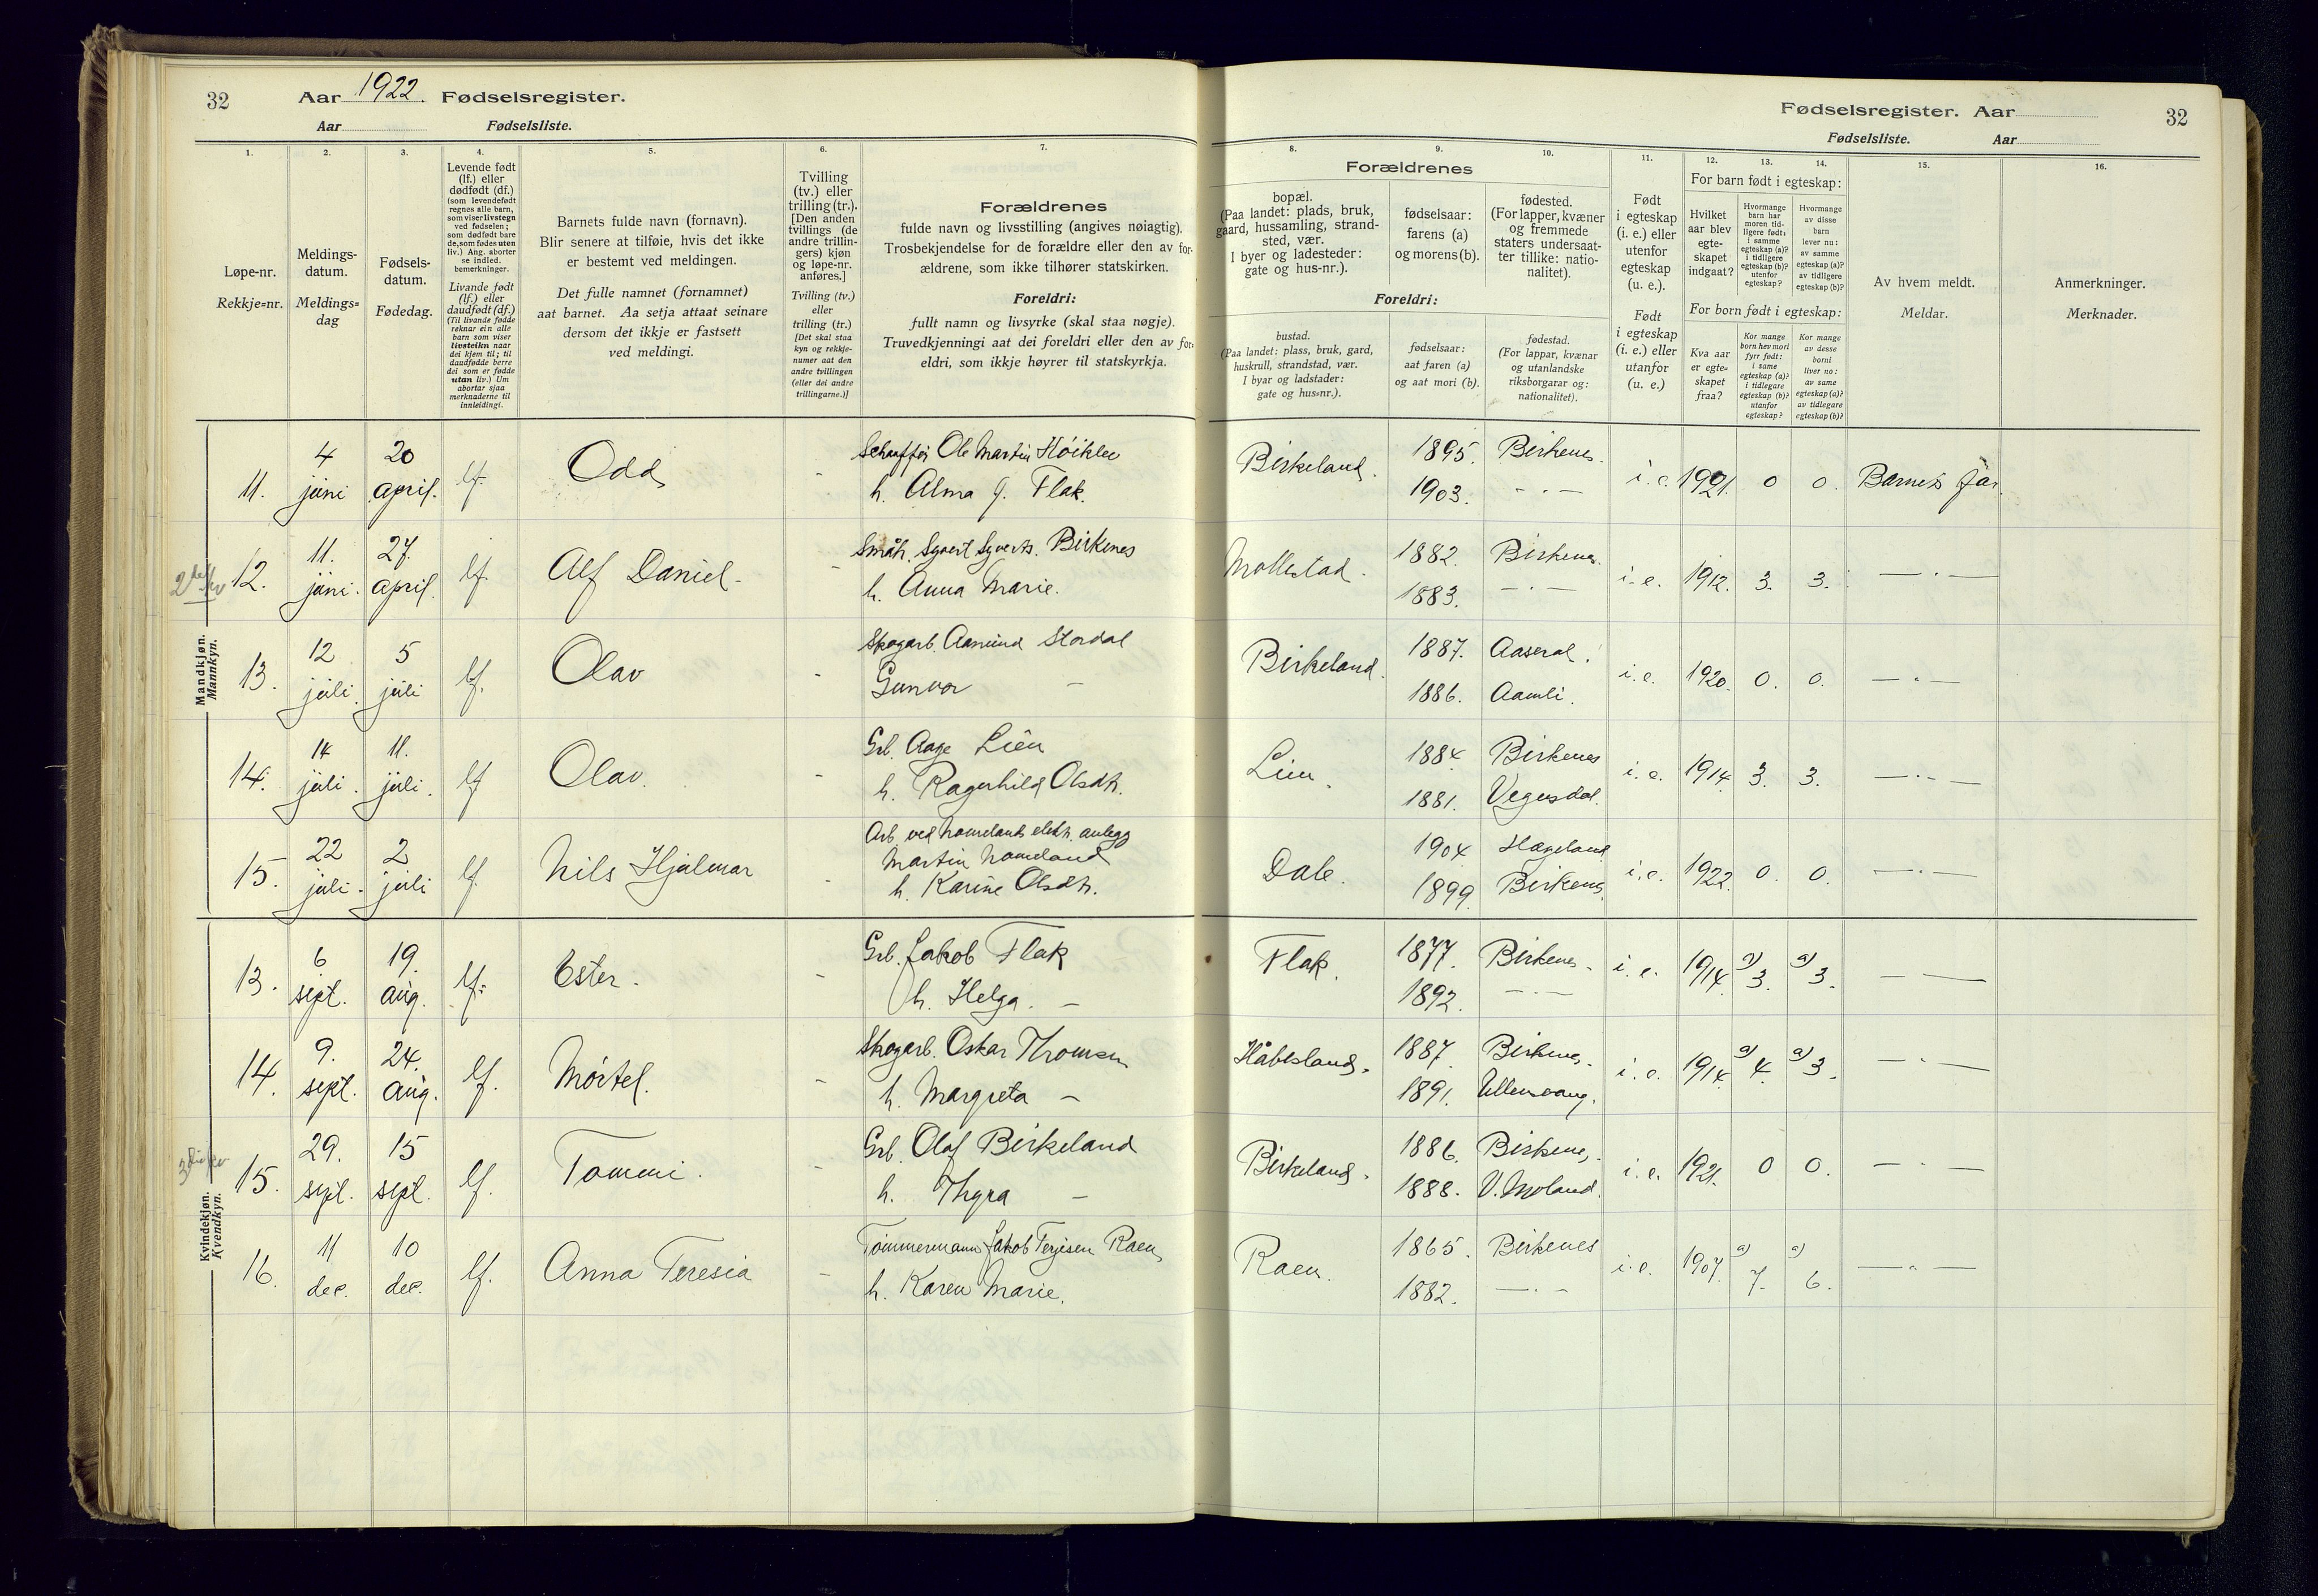 32 Aar 1922. Fødselsregister.
Aar Fødselsliste.
Fødselsregister. Aar 32
Fødselsliste. Aar
1. 2. 3. 4. 5. 6. 7.
Løpe-nr.
Rekkje=nr.
Meldings-
datum.
Meldings=
dag
Fødsels-
datum.
Fødedag.
Levende født
(lf.) eller
dødfødt (df.)
(som levendefødt
regnes alle barn,
som viser livstegn
ved fødselen;
som dødfødt bare
de, som fødes uten
liv.) Ang. aborter
se indled.
bemerkninger.
Livande født
(lf.) eller
daudfødt (df.)
(Til livande fødde
reknar ein alle
barn som viser
livsteikn naar
dei kjem til; til
daudfødde berre
dei som er fødde
utan liv.) Um
abortar sjaa
merknaderne til
innleidingi.
Barnets fulde navn (fornavn).
Blir senere at tilføie, hvis det ikke
er bestemt ved meldingen.
Det fulle namnet (fornamnet)
aat barnet. Aa setja attaat seinare
dersom det ikkje er fastsett
ved meldingi.
Tvilling
(tv.) eller
trilling (tr.).
[Den anden
tvillings (de
andre trillin-
gers) kjøn
og løpe-nr.
anføres.]
Tvilling (tv.)
eller
trilling (tr.)
[Det skal staa
kyn og rekkje-
numer aat den
andre tvillingen
(eller dei andre
trillingarne.)]
Forældrenes
fulde navn og livsstilling (angives nøiagtig).
Trosbekjendelse for de forældre eller den av for-
ældrene, som ikke tilhører statskirken.
Foreldri:
fullt namn og livsyrke (skal staa nøgje).
Truvedkjenningi aat dei foreldri eller den av for-
eldri, som ikkje høyrer til statskyrkja.
8. 9. 10. 11. 12. 13. 14. 15. 16.
Forældrenes
bopæl.
(Paa landet: plads, bruk,
gaard, hussamling, strand-
sted, vær.
I byer og ladesteder:
gate og hus-nr.).
fødselsaar:
farens (a)
og morens (b).
fødested.
(For lapper, kvæner
og fremmede
staters undersaat-
ter tillike: natio-
nalitet).
Foreldri:
bustad.
(Paa landet: plass, bruk, gard,
huskrull, strandstad, vær.
I byar og ladstader:
gate og hus=nr.).
fødselsaar:
aat faren (a)
og aat mori (b).
fødestad.
(For lappar, kvænar
og utanlandske
riksborgarar og:
nationalitet).
Født
i egteskap
(i. e.) eller
utenfor
egteskap
(u. e.).
Født
i egteskap
(i. e.) eller
utanfor
(u. e.)
For barn født i egteskap:
Hvilket
aar blev
egte-
skapet
indgaat?
Hvormange
barn har
moren tid-
ligere født:
i samme
egteskap (a)?
i tidligere
egteskap (b)?
utenfor
egteskap?
Hvormange
av disse
barn
lever nu:
av samme
egteskap (a)?
av tidligere
egteskap (b)?
For born født i egteskap:
Kva aar
er egte=
skapet
fraa?
Kor mange
born hev mori
fyrr født:
i same
egteskap (a)?
i tidlegare
egteskap (b)?
utanfor
egteskap?
Kor mange
av desse
borni
liver no:
av same
egteskap (a)?
av tidlegare
egteskap (b)?
Av hvem meldt.
Meldar.
Anmerkninger.
Merknader.
Mandkjøn.
Mannkyn.
11. 4 juni 20 april. lf. Odd - Schauffør Ole Martin Høiklev
h. Alma J. Flak.
Birkeland. 1895. Birkenes. i. e. 1921. 0 0. Barnets far.
1903. - . -
12. 11. juni. 27. april. lf. Alf Daniel. - Småbr. Syvert Syverts. Birkenes
h. Anna Marie.
Mollestad. 1882. Birkenes. i. e. 1912. 3. 3. - . -
1883. - . -
13. 12 juli. 5 juli lf. Olav - Skogarb. Aanund Stordal
Gunvor -
Birkeland. 1887. Aaseral. i. e. 1920. 0. 0. - " -
1886. Aamli.
14. 14 juli. 11. juli. lf Olav. - Grb. Aage Lien
h. Ragnhild Olsdtr.
Lien. 1884 Birkenes i. e. 1914. 3. 3. - . -
1881. Vegusdal.
15. 22 juli. 2 juli lf. Nils Hjalmar - Arb. ved Nomelands elektr. anlegg
Martin Nomeland
h. Karine Olsdtr.
Dale. 1904 Hægeland i. e. 1922. 0. 0. - . -
1899. Birkenes.
Kvindekjøn.
Kvendkyn.
13. 6 sept. 19. aug. lf. Ester. - Grb. Jakob Flak
h. Helga. -
Flak. 1877. Birkenes. i. e. 1914. a) 3. a) 3. - -
1892. - . -
14. 9. sept. 24. aug. lf. Mørtel. - Skogarb. Oskar Thomsen
h. Margreta -
Håbbesland. 1887. Birkenes. i. e. 1914. a) 4. a) 3. - . -
1891. Ullensvang.
15. 29. sept. 15 sept. lf. Tommi. - Grb. Olaf Birkeland
h. Thyra -
Birkeland. 1886. Birkenes. i. e. 1921. 0 0. - . -
1888. V. Moland.
16. 11 dec. 10 dec. lf. Anna Teresia - Tømmermann Jakob Terjesen Raen
h. Karen Marie.
Raen. 1865. Birkenes i. e. 1907. a) 7. a) 6. - " -
1882. - . -